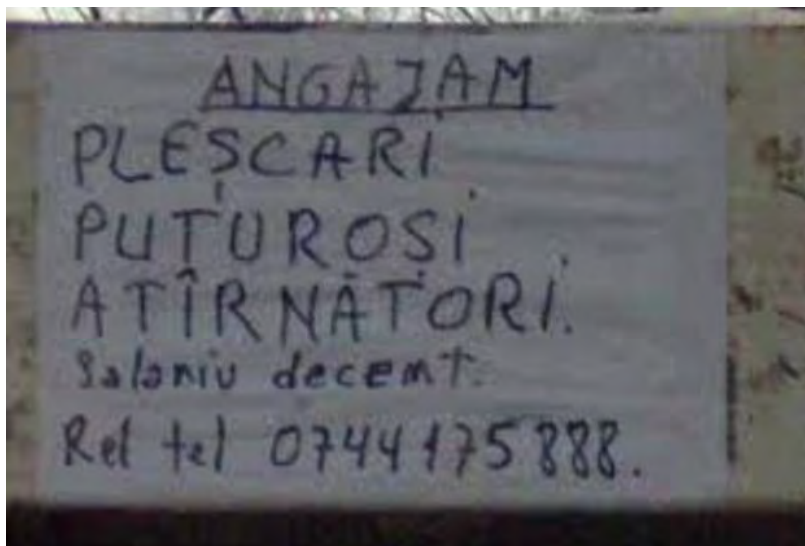 ANGAJAM
PLEȘCARI
PUȚUROȘI
ATÎRNĂTORI.
Salariu decent.
Rel tel 0744175888.